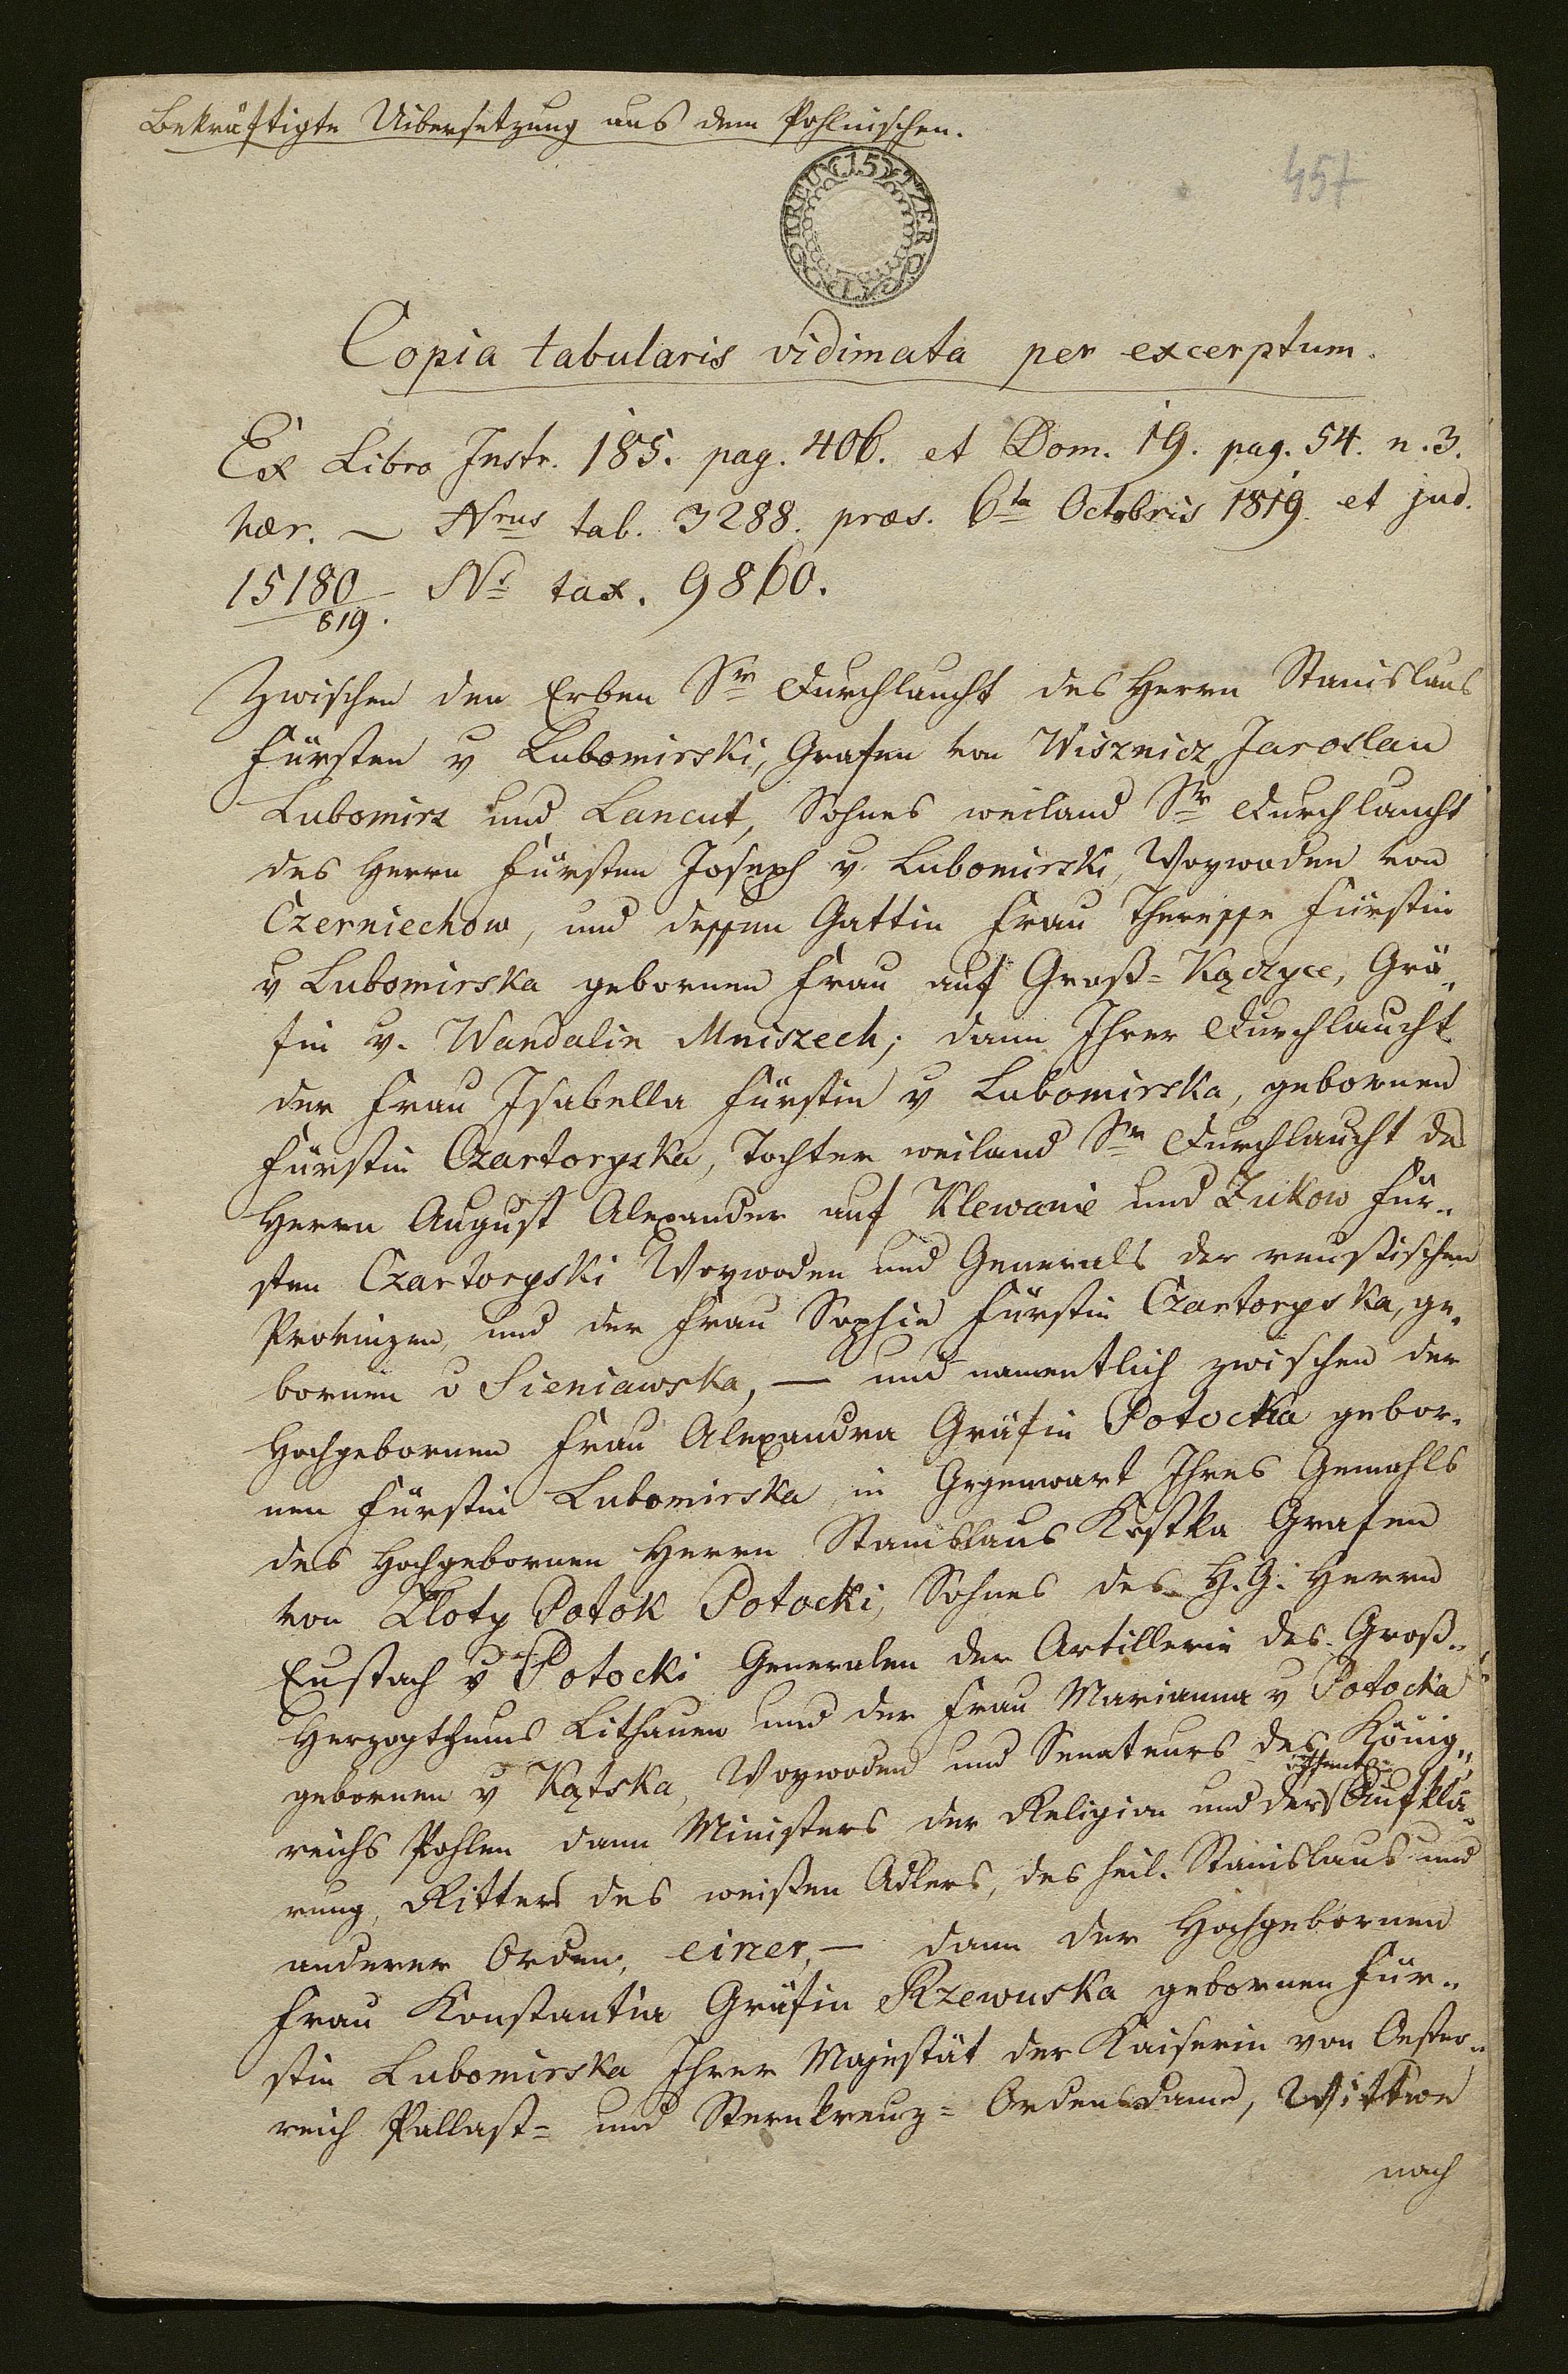 Bekräftigte Uibersetzung aus dem Pohlnischen.
15 KREUTZER
457
Copia tabularis vidimata per excerptum.
Ex Libro Instr. 185. pag. 406. et Dom. 19. pag. 54. n. 3.
hær. — Nrus tab. 3288. præs. 6ta Octobris 1819. et jud.
15180/819. — Nr tax. 9860.
Zwischen den Erben Sr Durchlaucht des Herrn Stanislaus
Fürsten v Lubomirski, Grafen von Wisznicz, Jaroslau
Lubomirz und Lancut, Sohnes weiland Sr Durchlaucht
des Herrn Fürsten Joseph v. Lubomirski, Woywoden von
Czerniechow, und dessen Gattin Frau Theresse Fürstin
v Lubomirska gebornen Frau auf Groß-Kączyce, Grä„
fin v. Wandalin Mniszech; dann Ihrer Durchlaucht
der Frau Isabella Fürstin v Lubomirska, gebornen
Fürstin Czartoryska, Tochter weiland Sr Durchlaucht des
Herrn August Alexander auf Klewanie und Zukow Für„
sten Czartoryski Woywoden und Generals der reußischen
Provinzen, und der Frau Sophie Fürstin Czartoryska, ge„
bornen v Sieniawska, — und namentlich zwischen der
Hochgebornen Frau Alexandra Gräfin Potocka gebor„
nen Fürstin Lubomirska, in Gegenwart Ihres Gemahls
des Hochgebornen Herrn Stanislaus Kostka Grafen
von Zloty Potok Potocki, Sohnes des H. G. Herrn
Eustach v Potocki Generalen der Artillerie des Groß„
Herzogthums Lithauen und der Frau Marianna v Potocka
gebornen v Kątska, Woywoden und Senateurs des König„
reichs Pohlen dann Ministers der Religion und der öffentl: Aufklä„
rung, Ritters des weißen Adlers, des heil. Stanislaus und
anderer Orden, einer, — dann der Hochgebornen
Frau Konstantia Gräfin Rzewuska gebornen Für„
stin Lubomirska Ihrer Majestät der Kaiserin von Oester„
reich Pallast- und Sternkreuz- Ordensdame, Wittwe
nach